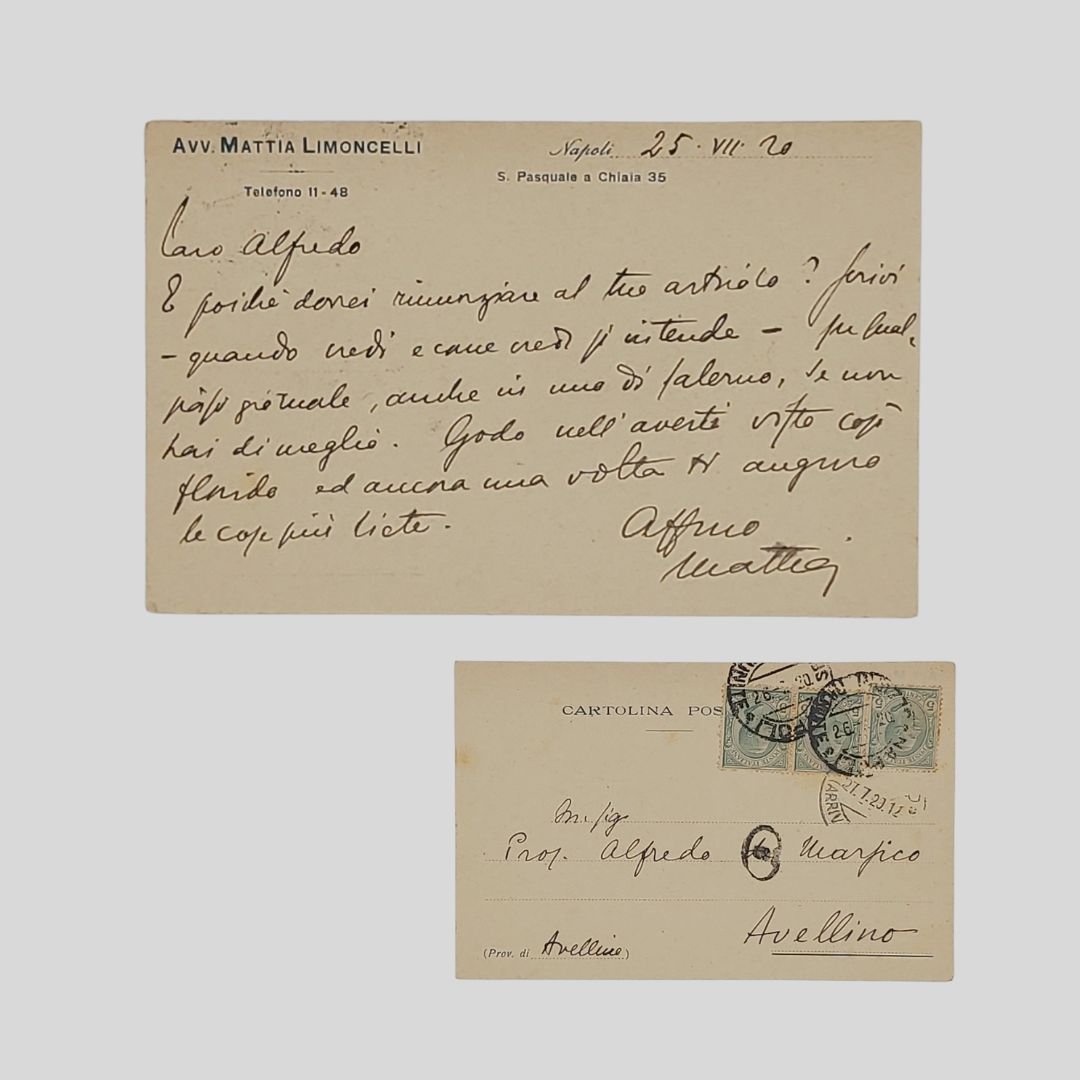 AVV. MATTIA LIMONCELLI
Telefono 11-48
Napoli 25. VII. 20
S. Pasquale a Chiaia 35
Caro Alfredo
E poichè dovrei rinunziare al tuo articolo? Scrivi
- quando credi e come credi si intende - su qual-
siasi giornale, anche in uno di Salerno, se non
hai di meglio. Godo nell'averti visto così
florido ed ancora una volta ti auguro
le cose più liete.
Affmo
Mattia
CARTOLINA POS
26.
20.
26.
20
27.7.20.12
ARRIV
Prof. Alfredo de Marsico
Avellino
(Prov. di Avellino)